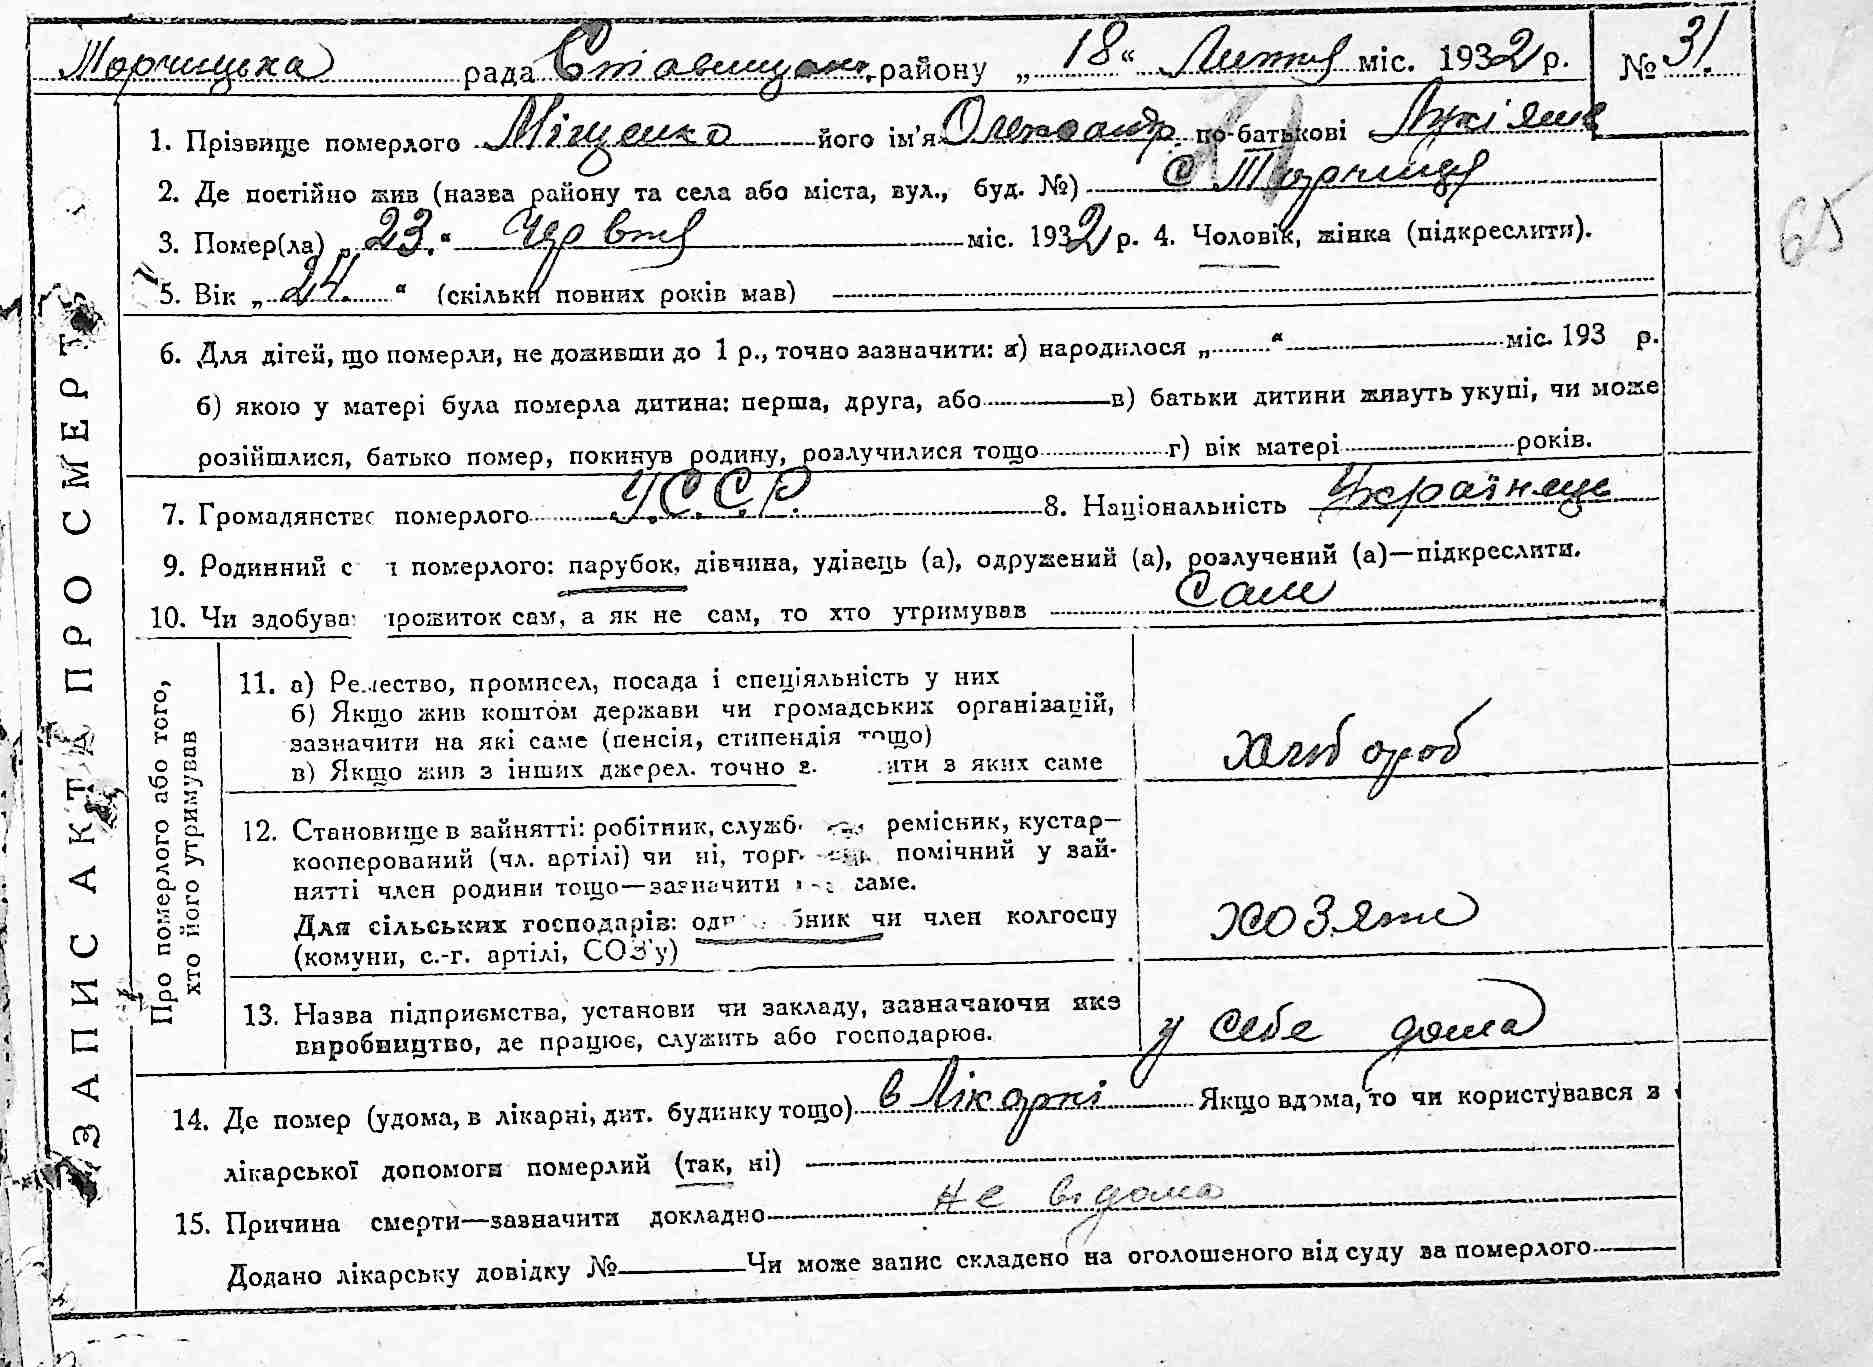 Торчицька рада Ставищан. району „ 18 “ Липня міс. 1932 р. № 31.
1. Прізвище померлого Міщенко його ім'я Олександр по-батькові
2. Де постійно жив (назва району та села або міста, вул., буд. №) с Торчиця
3. Помер(ла) „ 23. “ Червня міс. 1932 р. 4. Чоловік, жінка (підкреслити).
5. Вік „ 24. “ (скільки повних років мав)
6. Для дітей, що померли, не доживши до 1 р., точно зазначити: а) народилося „ “ міс. 193 р.
б) якою у матері була померла дитина: перша, друга, або в) батьки дитини живуть укупі, чи може
розійшлися, батько помер, покинув родину, розлучилися тощо г) вік матері років.
7. Громадянство померлого У.С.С.Р. 8. Національність Українець
9. Родинний с померлого: парубок, дівчина, удівець (а), одружений (а), розлучений (а)—підкреслити.
10. Чи здобува прожиток сам, а як не сам, то хто утримував Сам
ЗАПИС АКТА ПРО СМЕРТЬ
Про померлого або того,
хто його утримував
11. а) Ремество, промисел, посада і спеціяльність у них
б) Якщо жив коштом держави чи громадських організацій,
зазначити на які саме (пенсія, стипендія тощо)
в) Якщо жив з інших джерел. точно з яких саме
Хлібороб
12. Становище в зайнятті: робітник, служб ремісник, кустар—
кооперований (чл. артілі) чи ні, торг помічний у зай-
нятті член родини тощо—зазначити саме.
Для сільських господарів: одн чи член колгоспу
(комуни, с.-г. артілі, СОЗ'у)
хозяін
13. Назва підприємства, установи чи закладу, зазначаючи яке
виробництво, де працює, служить або господарює.
у себе дома
14. Де помер (удома, в лікарні, дит. будинку тощо) в лікарні Якщо вдома, то чи користувався з
лікарської допомоги померлий (так, ні)
15. Причина смерти—зазначити докладно не відома
Додано лікарську довідку № Чи може запис складено на оголошеного від суду за померлого
65